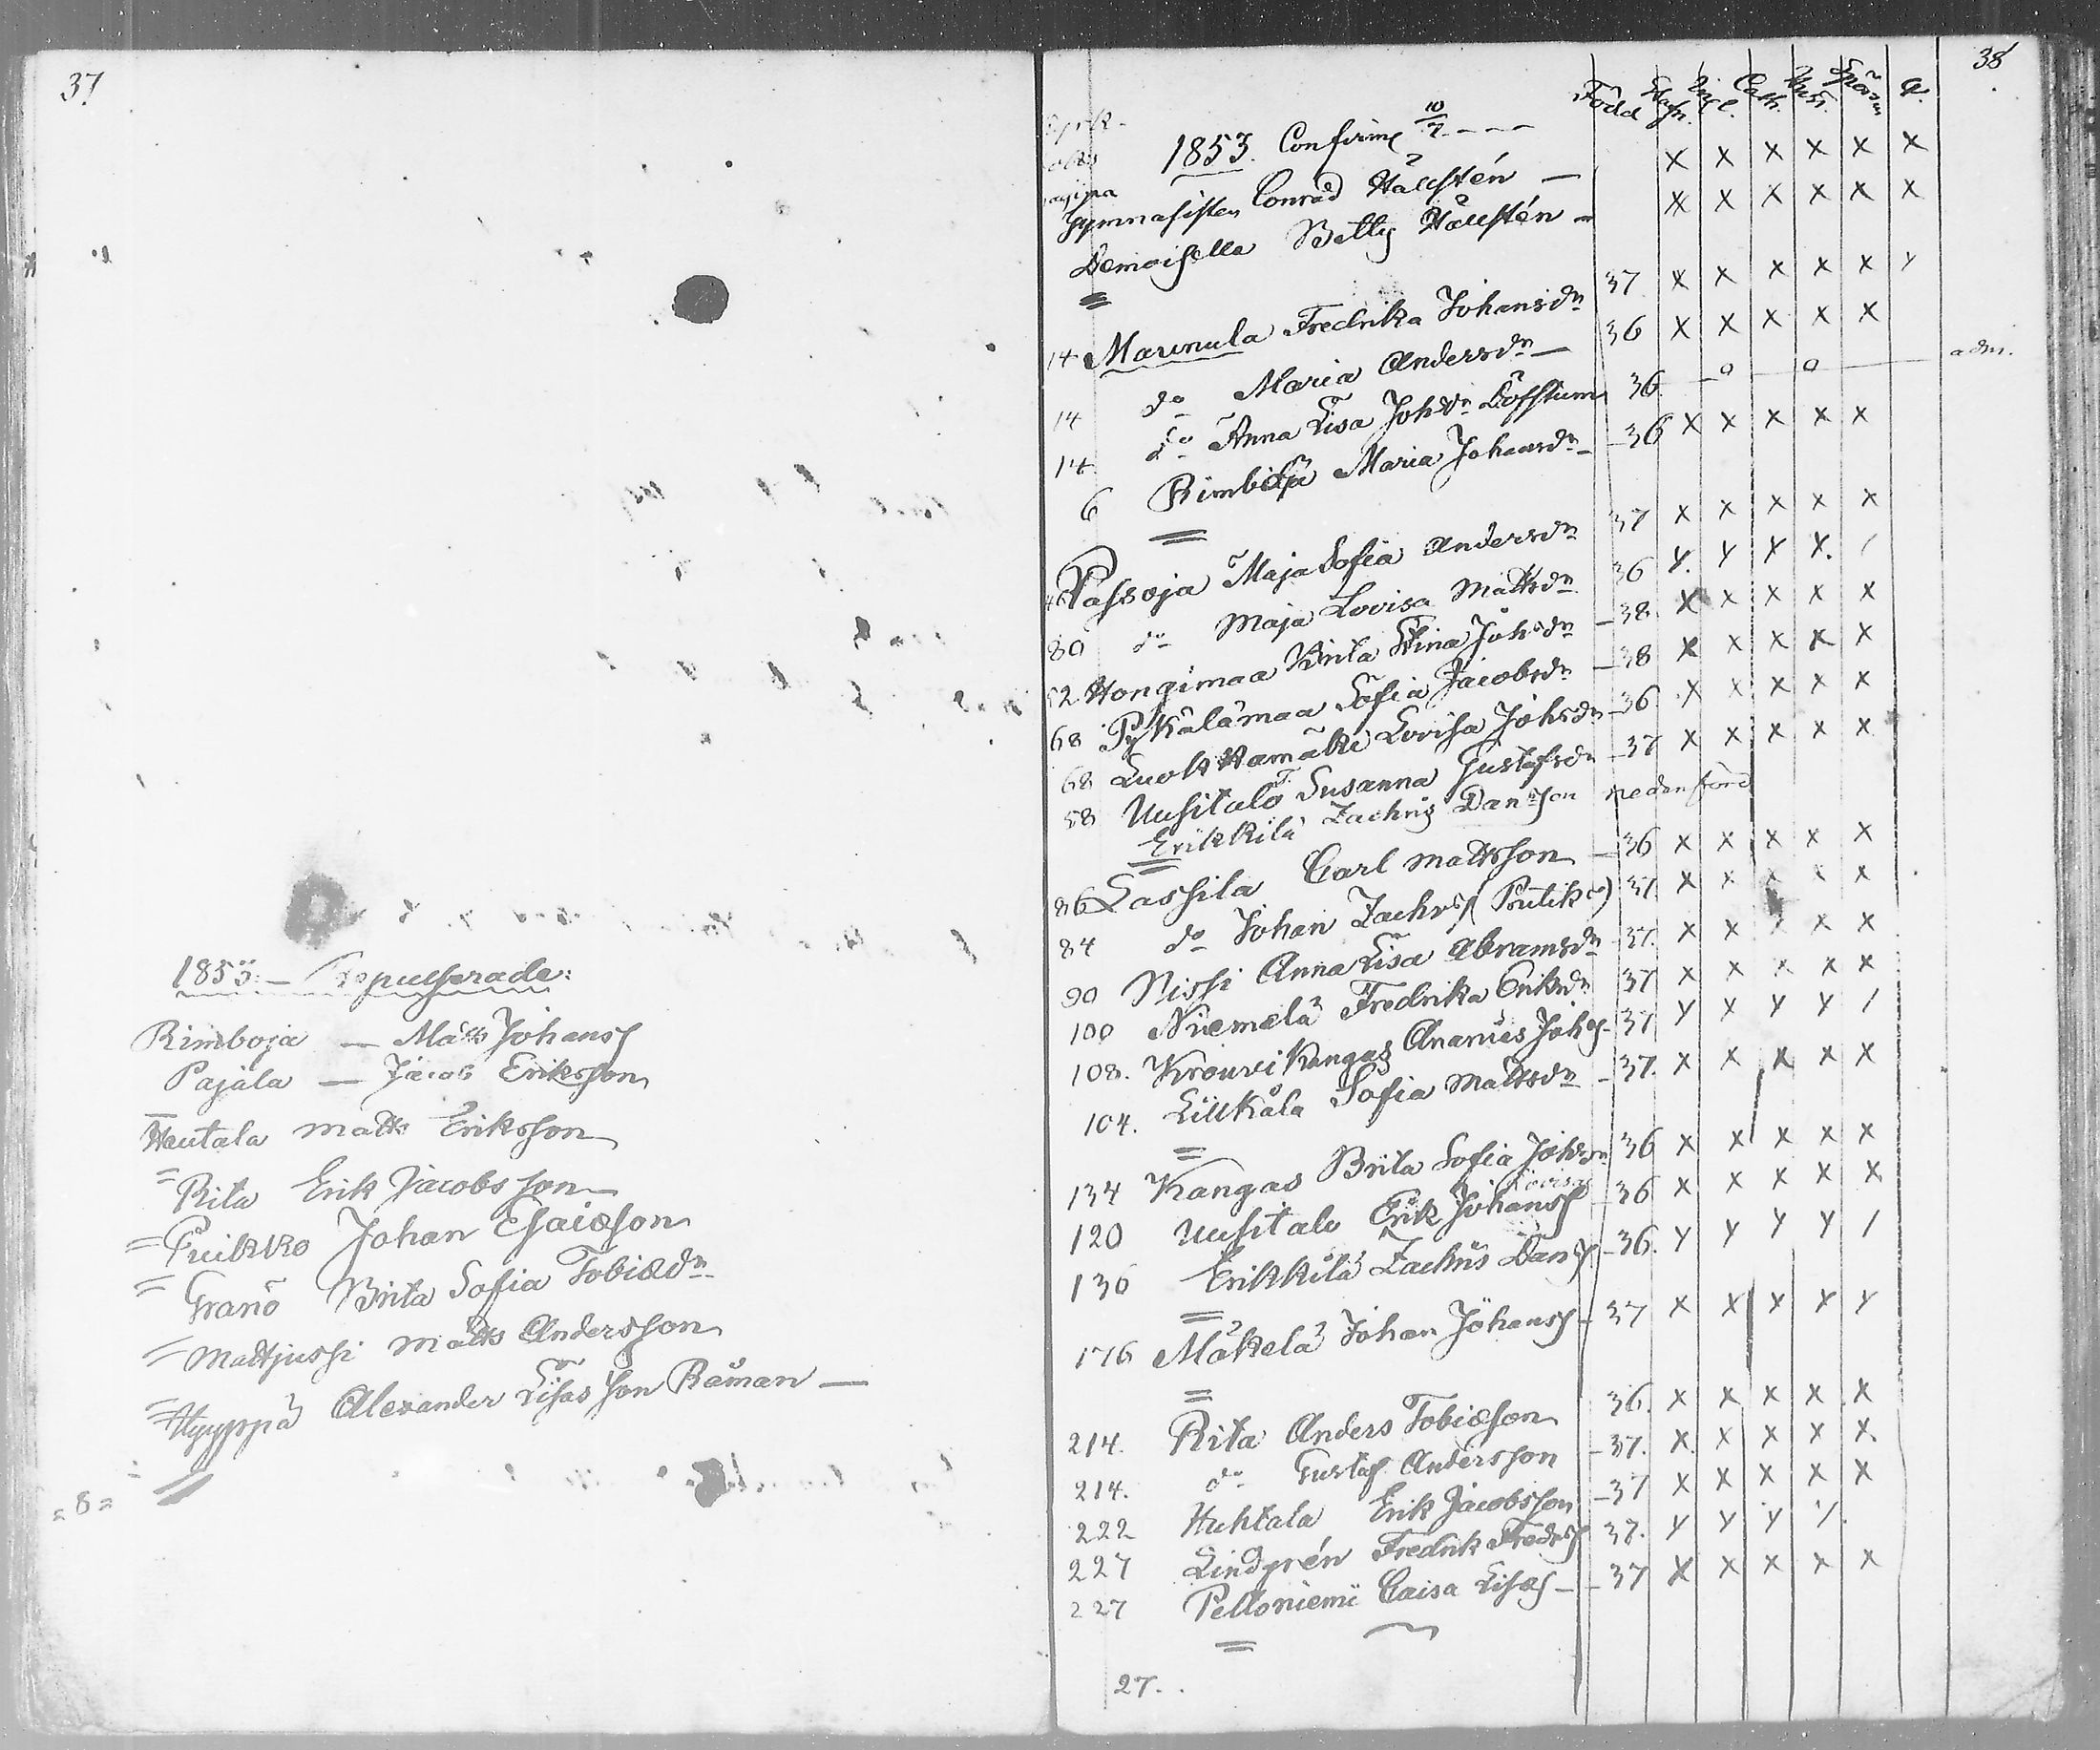 37
1853. – Repulserade:
Rimboja — Matts Johanss
Pajala — Jacob Eriksson
Hautala Matts Eriksson
= Rita Erik Jacobsson
= Puikko Johan Esaiæson
= Granö Brita Sofia Tobiædn
= Mattjussi Matts Andersson
= Hyyppä Alexander Lisasson Råman —
= 8 =
38
Född Cath. Spörsm
1853. Confirm 10/7 - - -
pagina
Gymnasisten Conrad Hällstén — x x x x x x
Demoiselle Betty Hällstén — x x x x x x
14 Marunula Fredrika Johansdn 37 x x x x x x
14 do Maria Andersdn — 36 x x x x x
14 do Anna Lisa Johsdn Löfstum 36 — o o adm.
6 Rimbilä Maria Johansdn — 36 x x x x x
46 Passoja Maja Sofia Andersdn 37 x x x x x
80 do Maja Lovisa Mattsdn 36 x x x x /
52 Hongimaa Brita Stina Johsdn — 38 x x x x x
68 Pykälämaa Sofia Jacobsdn — 38 x x x x x
68 Luokkamäki Lovisa Johsdn — 36 x x x x x
58 Uusitalo Susanna Gustafsdn — 37 x x x x x
Erikkilä Zachris Danson nedanföre
86 Lassila Carl Mattsson — 36 x x x x x
84 do Johan Zachrs (Putik) 37 x x x x x
90 Nissi Anna Lisa Abramsdn 37. x x x x x
100 Niemelä Fredrika Eriksdn 37 x x x x x
108. Krouvikangas Ananias Johs — 37 x x x x /
104. Lillkåla Sofia Mattsdn — 37. x x x x x
134 Kangas Brita Sofia Johsdn 36 x x x x x
Lovisa
120 Uusitalo Erik Johanss — 36 x x x x x
136 Erikkilä Zachris Dans — 36. x x x x /
176 Mäkelä Johan Johanss — 37 x x x x x
214. Rita Anders Tobiæson 36. x x x x x
214. do Gustaf Andersson — 37. x x x x x
222 Huhtala Erik Jacobsson — 37 x x x x x
227 Lindgrén Fredrik Fredrs 37. x x x /.
227 Pelloniemi Caisa Lisas — 37 x x x x x
27.